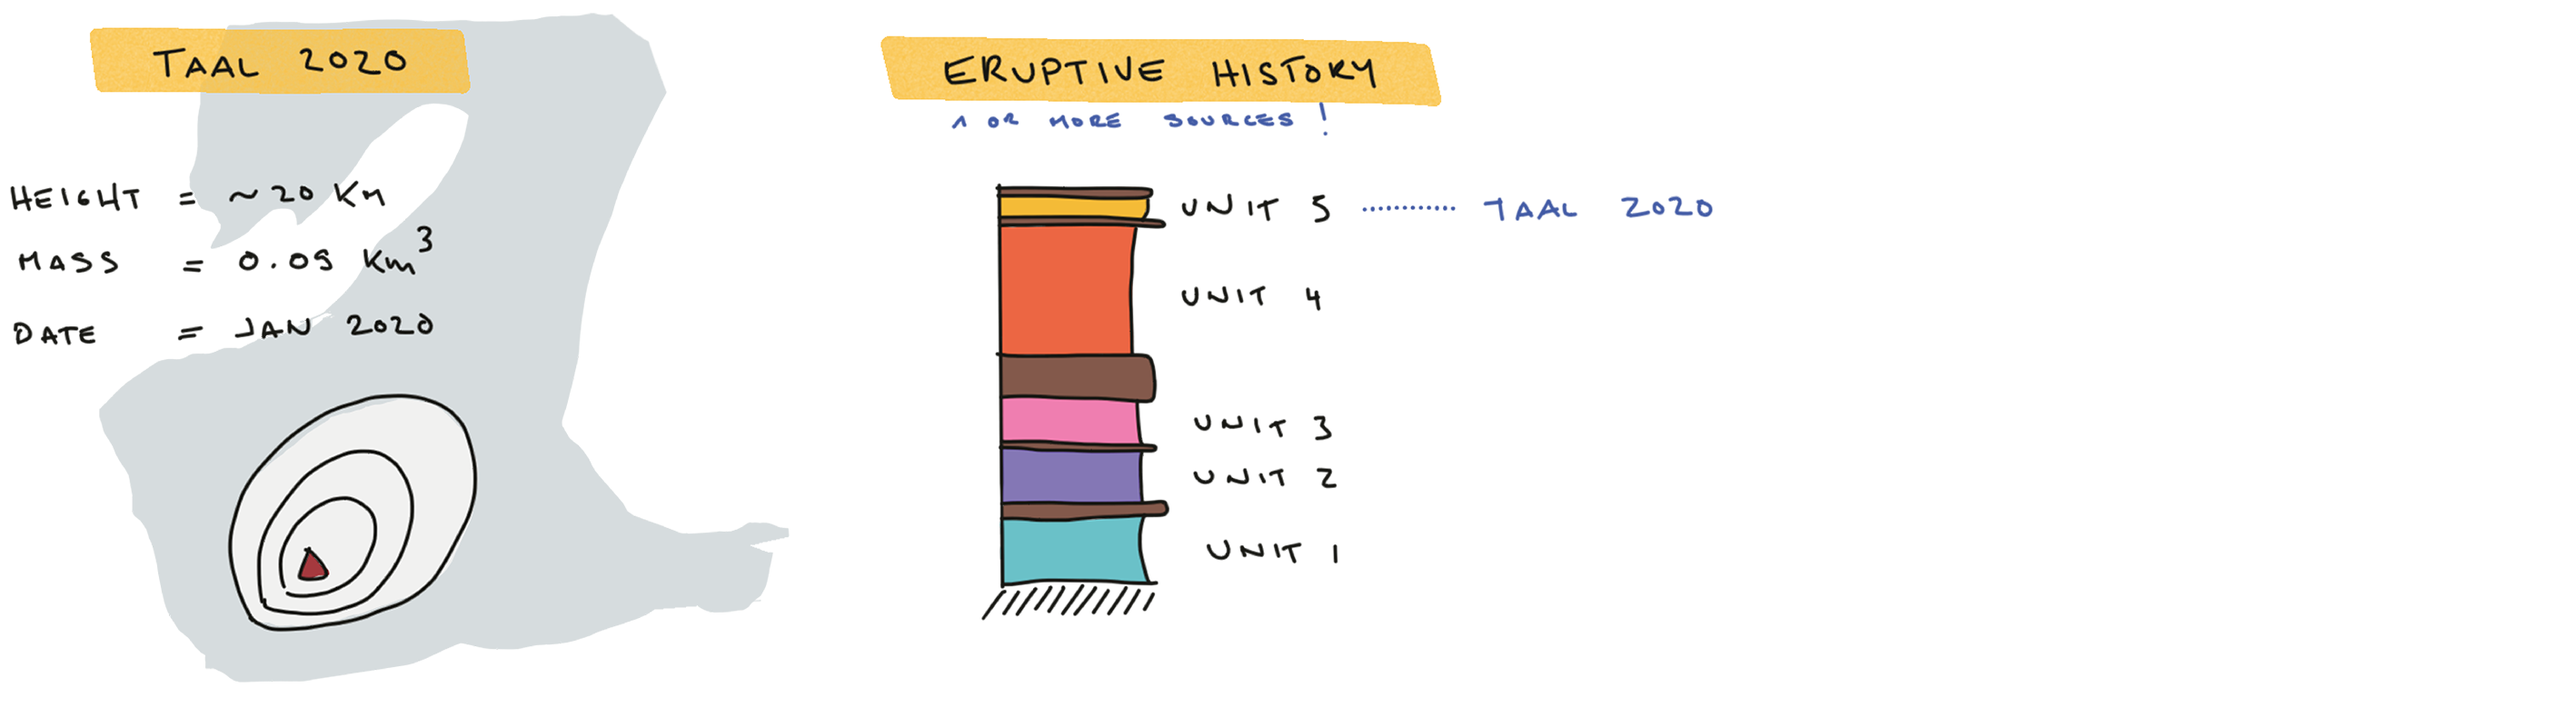 TAAL 2020
HEIGHT = ~20 Km
MASS = 0.05 Km³
DATE = JAN 2020
ERUPTIVE HISTORY
1 OR MORE SOURCES !
UNIT 5 ............ TAAL 2020
UNIT 4
UNIT 3
UNIT 2
UNIT 1